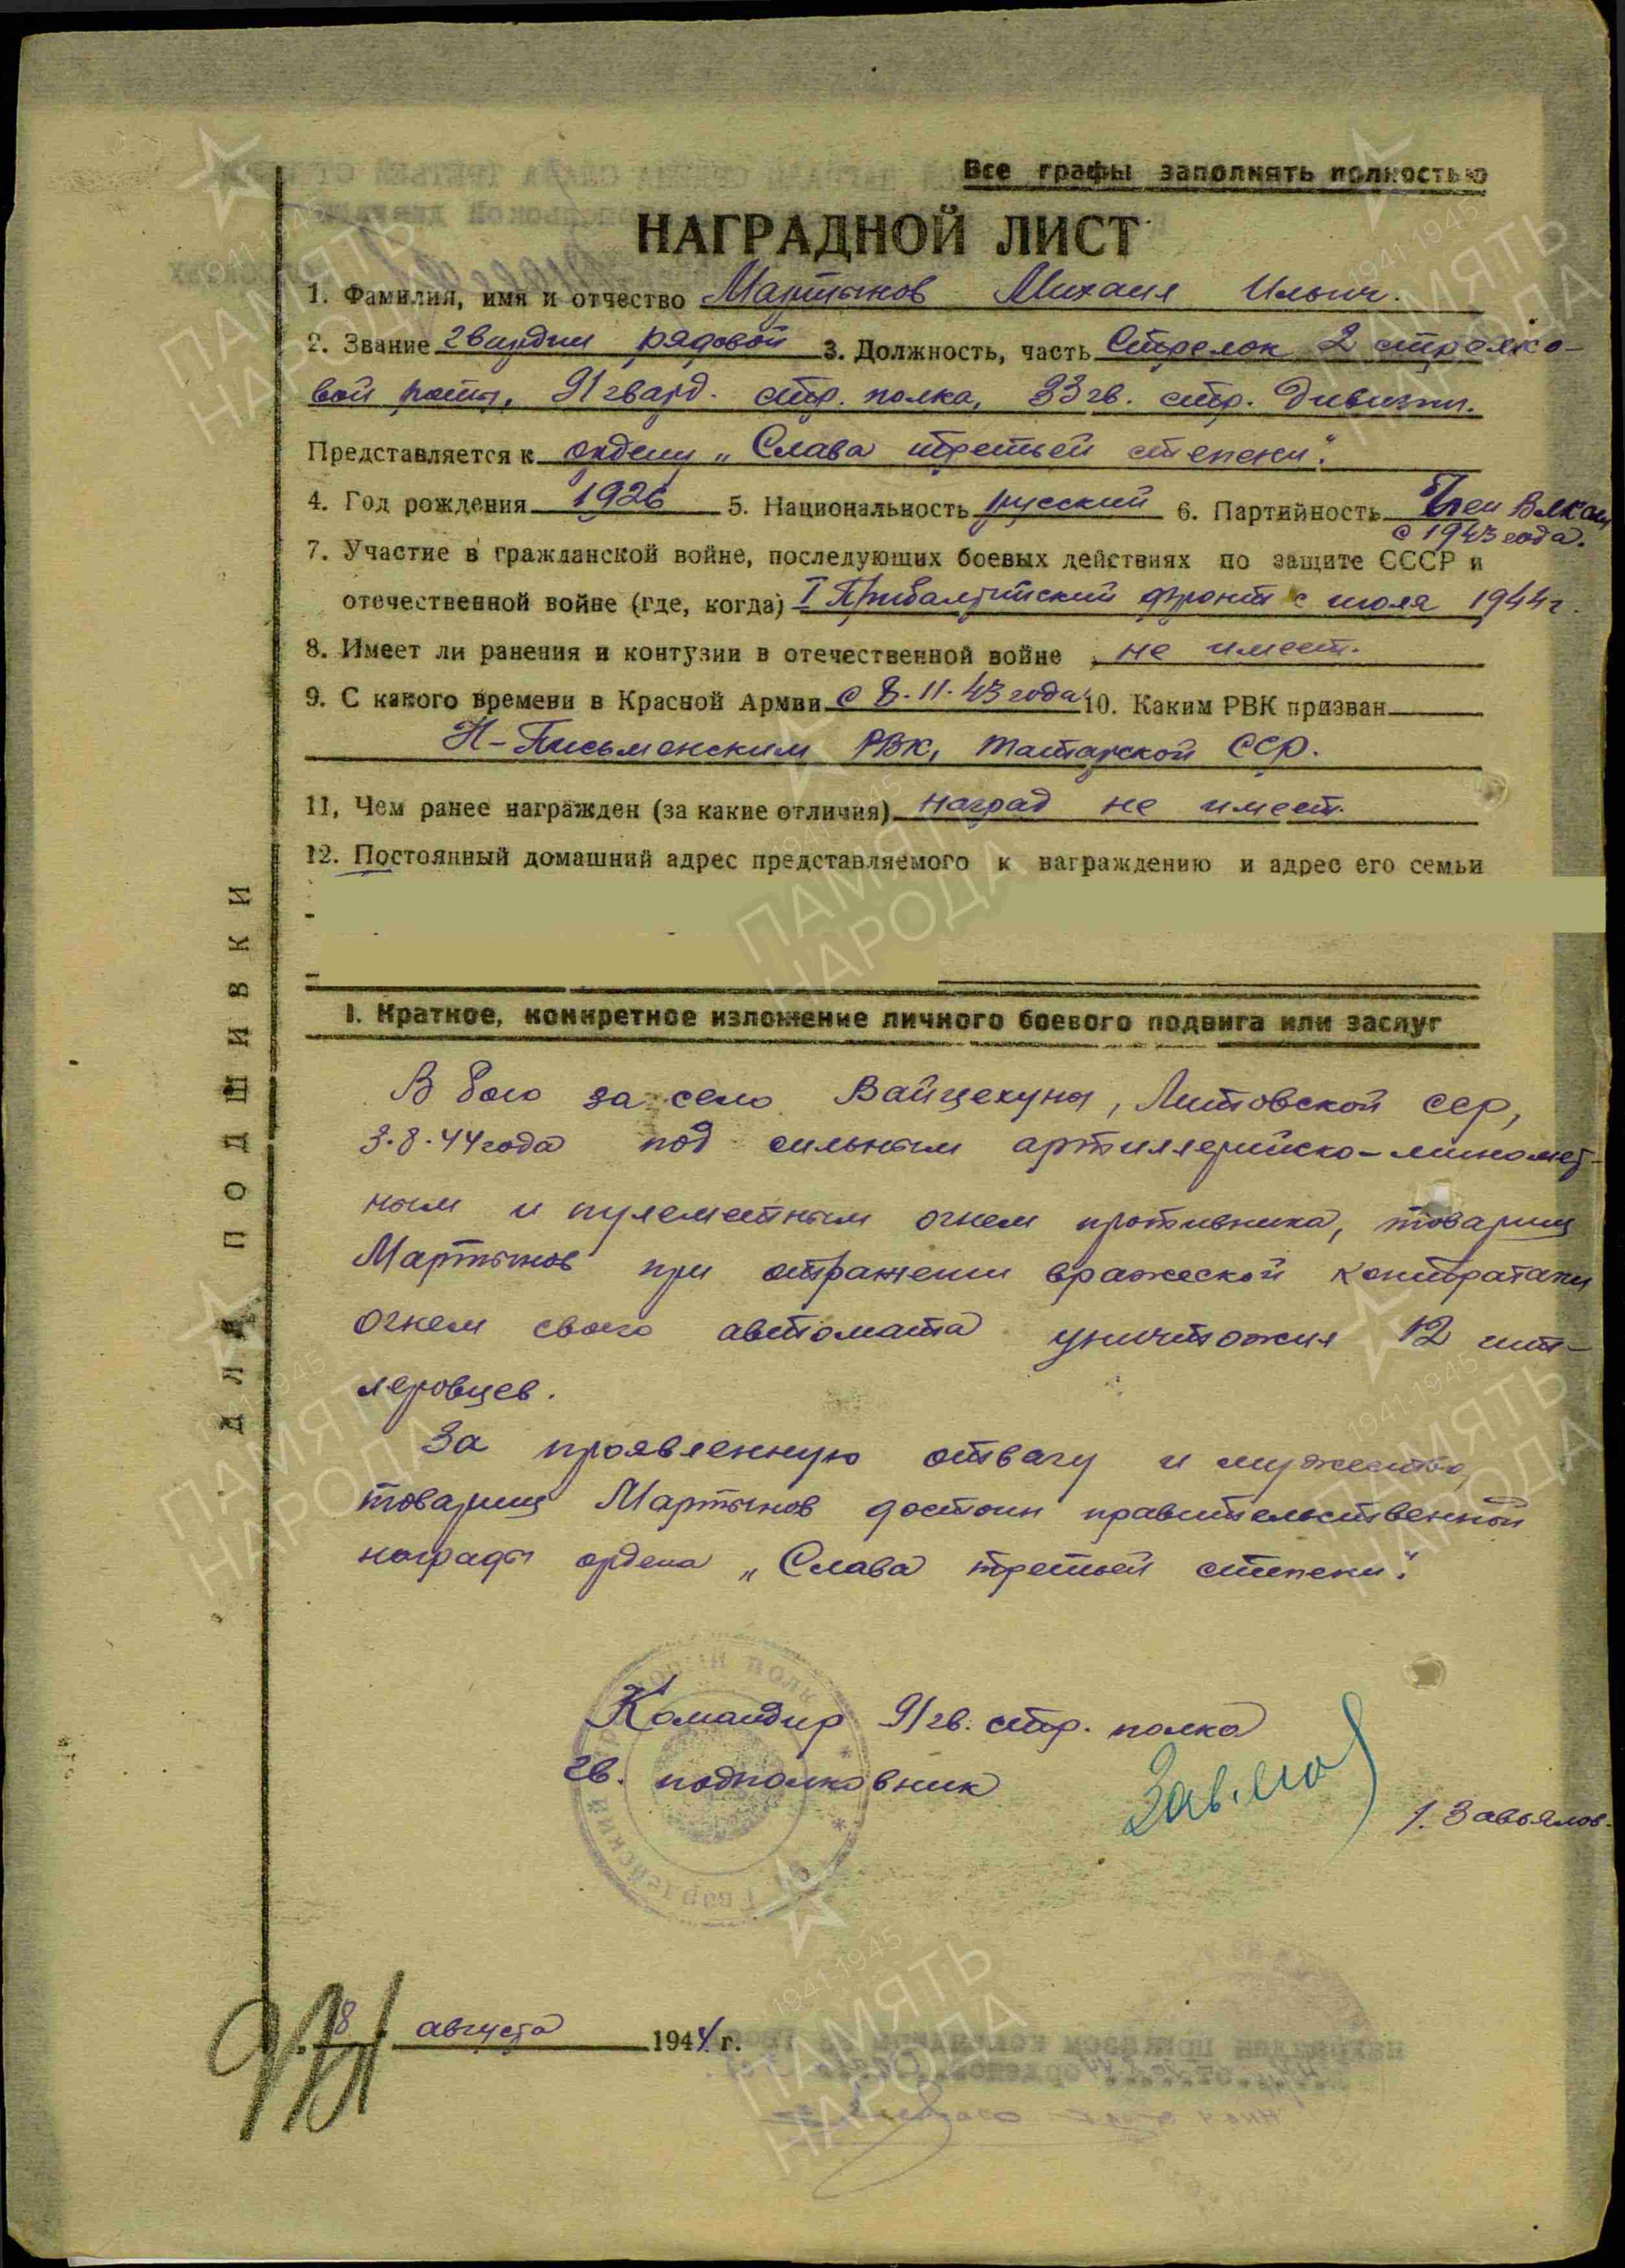 Все графы заполнять полностью
НАГРАДНОЙ ЛИСТ
1. Фамилия, имя и отчество Мартынов Михаил Ильич.
2. Звание гвардии рядовой 3. Должность, часть Стрелок 2 стрелко-
вой роты, 91 гвард. стр. полка, 33 гв. стр. дивизии.
Представляется к ордену „Слава третьей степени".
4. Год рождения 1926 5. Национальность русский 6. Партийность Член ВЛКСМ
с 1943 года.
7. Участие в гражданской войне, последующих боевых действиях по защите СССР и
отечественной войне (где, когда) I Прибалтийский фронт с июля 1944 г.
8. Имеет ли ранения и контузии в отечественной войне не имеет.
9. С какого времени в Красной Армии с 8.11.43 года 10. Каким РВК призван
Н-Письменским РВК, Татарской ССР.
11, Чем ранее награжден (за какие отличия) наград не имеет.
12. Постоянный домашний адрес представляемого к награждению и адрес его семьи
I. Краткое, конкретное изложение личного боевого подвига или заслуг
В бою за село Вайцекуны, Литовской ССР,
3.8.44 года под сильным артиллерийско-миномет-
ным и пулеметным огнем противника, товарищ
Мартынов при отражении вражеской контратаки
огнем своего автомата уничтожил 12 гит-
леровцев.
За проявленную отвагу и мужество,
товарищ Мартынов достоин правительственной
награды ордена „Слава третьей степени".
Командир 91 гв. стр. полка
гв. подполковник
Завьялов.
8 августа 1944 г.
ДЛЯ ПОДШИВКИ
1941-1945
ПАМЯТЬ
НАРОДА